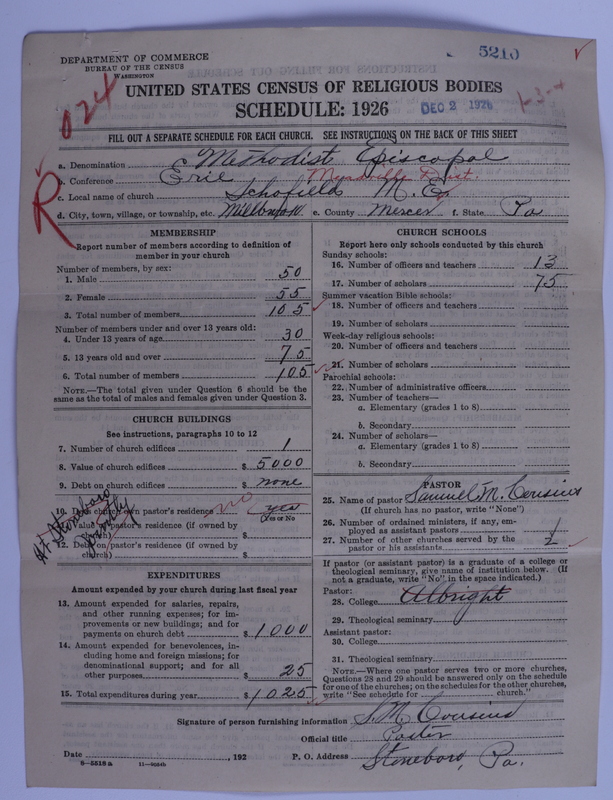 DEPARTMENT OF COMMERCE
BUREAU OF THE CENSUS
WASHINGTON
5210
UNITED STATES CENSUS OF RELIGIOUS BODIES
SCHEDULE: 1926
DEC 2 1926
1-3-4
024
FILL OUT A SEPARATE SCHEDULE FOR EACH CHURCH. SEE INSTRUCTIONS ON THE BACK OF THIS SHEET
a. Denomination Methodist Episcopal
b. Conference Erie Dist.
c. Local name of church Schofields M. E.
d. City, town, village, or township, etc. e. County Mercer f. State Pa
R
MEMBERSHIP
Report number of members according to definition of member in your church
Number of members, by sex:
1. Male 50
2. Female 55
3. Total number of members 105
Number of members under and over 13 years old:
4. Under 13 years of age 30
5. 13 years old and over 75
6. Total number of members 105
NOTE.—The total given under Question 6 should be the same as the total of males and females given under Question 3.
CHURCH BUILDINGS
See instructions, paragraphs 10 to 12
7. Number of church edifices 1
8. Value of church edifices $ 5000
9. Debt on church edifices $ none
10. Does church own pastor's residence? no yes
(Yes or No)
11. Value of pastor's residence (if owned by church) $
12. Debt on pastor's residence (if owned by church) $
At Stoneboro
Jointly
EXPENDITURES
Amount expended by your church during last fiscal year
13. Amount expended for salaries, repairs, and other running expenses; for improvements or new buildings; and for payments on church debt $ 1000
14. Amount expended for benevolences, including home and foreign missions; for denominational support; and for all other purposes $ 25
15. Total expenditures during year $ 1025
CHURCH SCHOOLS
Report here only schools conducted by this church
Sunday schools:
16. Number of officers and teachers 13
17. Number of scholars 75
Summer vacation Bible schools:
18. Number of officers and teachers
19. Number of scholars
Week-day religious schools:
20. Number of officers and teachers
21. Number of scholars
Parochial schools:
22. Number of administrative officers
23. Number of teachers—
a. Elementary (grades 1 to 8)
b. Secondary
24. Number of scholars—
a. Elementary (grades 1 to 8)
b. Secondary
PASTOR
25. Name of pastor Samuel M. Cousins
(If church has no pastor, write "None")
26. Number of ordained ministers, if any, employed as assistant pastors 1
27. Number of other churches served by the pastor or his assistants 2
If pastor (or assistant pastor) is a graduate of a college or theological seminary, give name of institution below. (If not a graduate, write "No" in the space indicated.)
Pastor:
28. College Albright
29. Theological seminary
Assistant pastor:
30. College
31. Theological seminary
NOTE.—Where one pastor serves two or more churches, Questions 28 and 29 should be answered only on the schedule for one of the churches; on the schedules for the other churches, write "See schedule for church."
Signature of person furnishing information S. M. Cousins
Official title Pastor
Date , 192 P. O. Address Stoneboro, Pa.
8-5518a 11-9054b